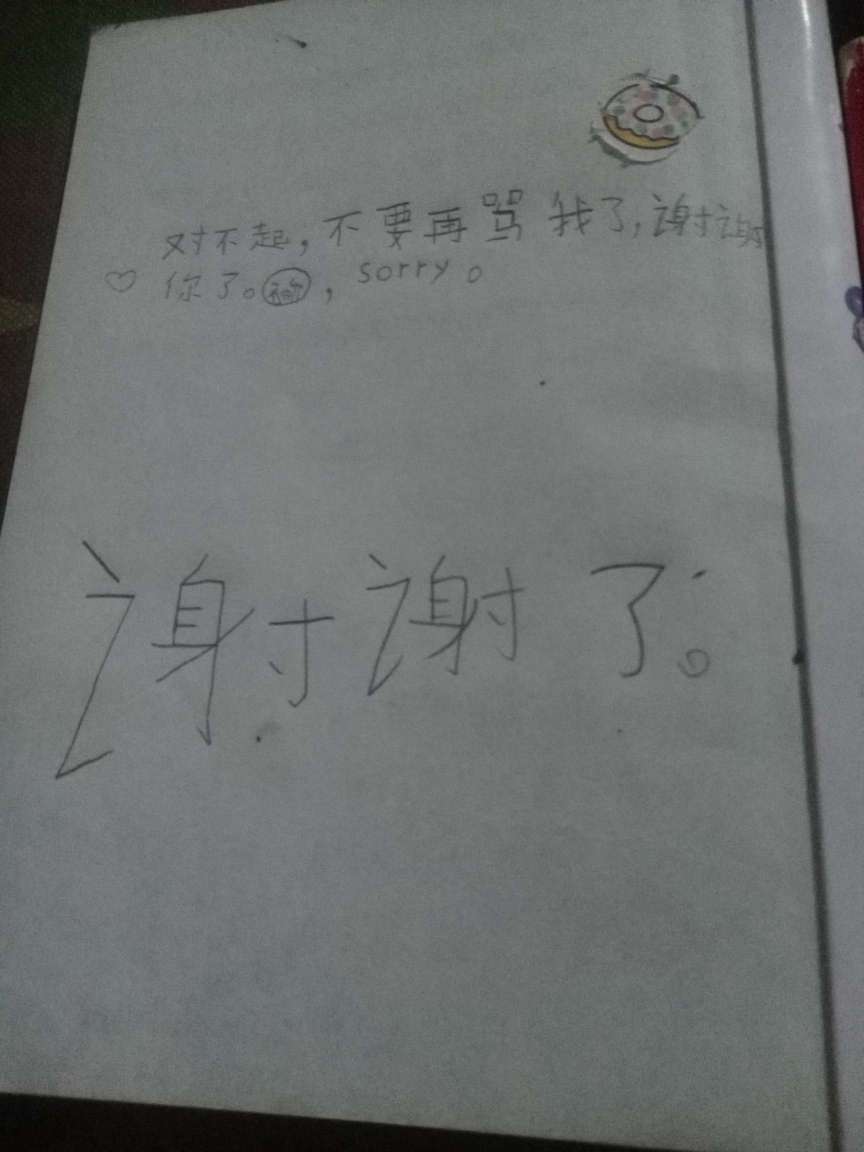 对不起，不要再骂我了，谢谢
你了。，sorry。
谢谢了。